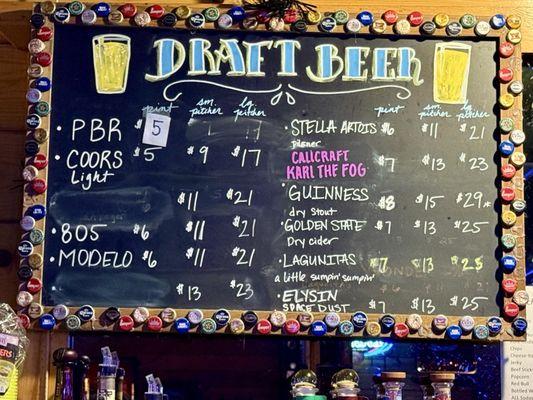 DRAFT BEER
pint sm. pitcher lg. pitcher
• PBR $5
• COORS $5 $9 $17
Light
$11 $21
• 805 $6 $11 $21
• MODELO $6 $11 $21
$13 $23
pint sm. pitcher lg. pitcher
• STELLA ARTOIS $6 $11 $21
pilsner
CALICRAFT $7 $13 $23
KARL THE FOG
• GUINNESS $8 $15 $29*
dry Stout
• GOLDEN STATE $7 $13 $25
Dry cider
• LAGUNITAS $7 $13 $25
a little sumpin' sumpin'
• ELYSIN $7 $13 $25
SPACE DUST
Chips
Jerky
Beef Sticks
Popcorn
Red Bull